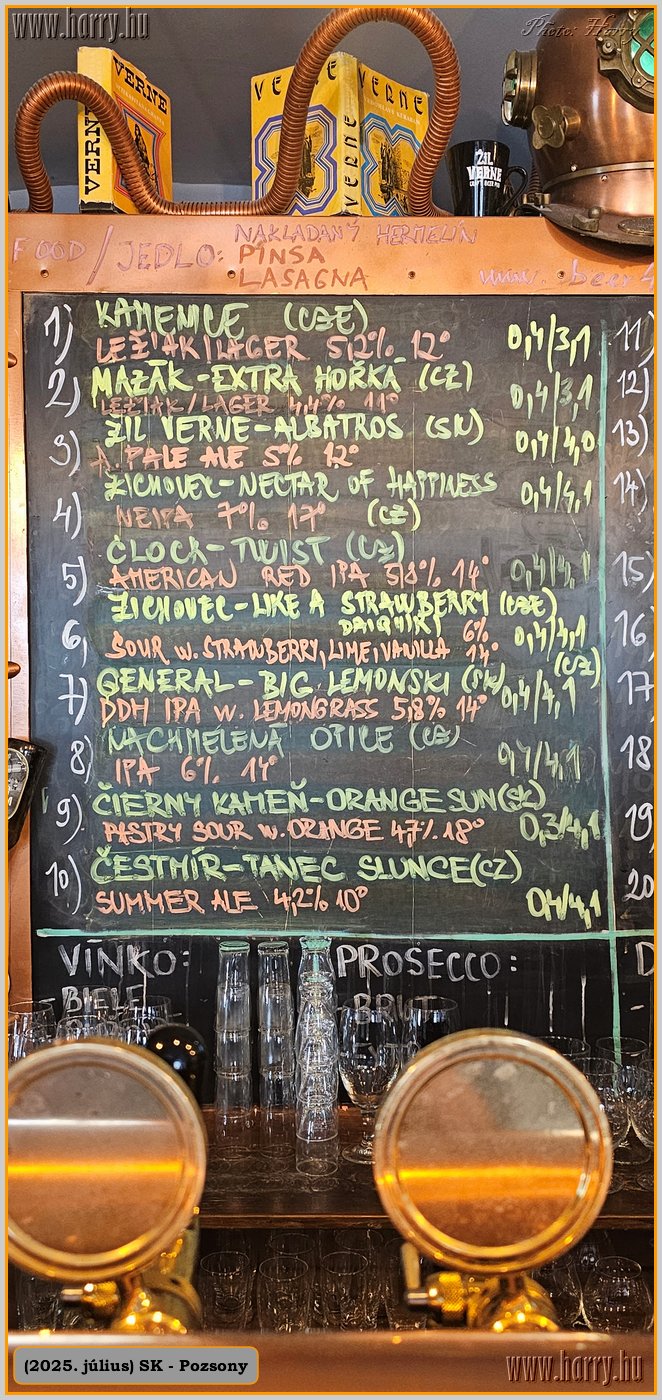 www.horry.hu
Photo: Horry
VERNE
VERNE
VERNE
VERNE
VERNE
ŽIL
VERNE
CRAFT BEER PUB
FOOD/JEDLO: NAKLADANÝ HERMELÍN
PINSA
LASAGNA
www.beer
1) KAMENICE (CZE) 0,4/3,1
LEŽIAK/LAGER 5,2% 12°
2) MAZÁK-EXTRA HOŘKÁ (CZ) 0,4/3,1
LEŽIAK/LAGER 4,4% 11°
3) ŽIL VERNE-ALBATROS (SK) 0,4/4,0
A. PALE ALE 5% 12°
4) ZICHOVEC-NECTAR OF HAPPINESS 0,4/4,1
NEIPA 7% 17° (CZ)
5) CLOCK-TWIST (CZ) 0,4/4,1
AMERICAN RED IPA 5,8% 14°
6, ZICHOVEC-LIKE A STRAWBERRY (CZE)
DAIQUIRI 6% 0,4/4,1
SOUR w. STRAWBERRY, LIME, VANILLA 14° (CZ)
7) GENERAL-BIG LEMONSKI (SK) 0,4/4,1
DDH IPA w. LEMONGRASS 5,8% 14°
8) NACHMELENÁ OPICE (CZ) 0,4/4,1
IPA 6% 14°
9) ČIERNY KAMEŇ-ORANGE SUN (SK) 0,3/4,1
PASTRY SOUR w. ORANGE 4,7% 18°
10) ČESTMÍR-TANEC SLUNCE (CZ) 0,4/4,1
SUMMER ALE 4,2% 10°
11)
12)
13)
14)
15)
16)
17
18
19
20
VÍNKO: PROSECCO: D
BIELE BRUT
(2025. július) SK - Pozsony
www.horry.hu